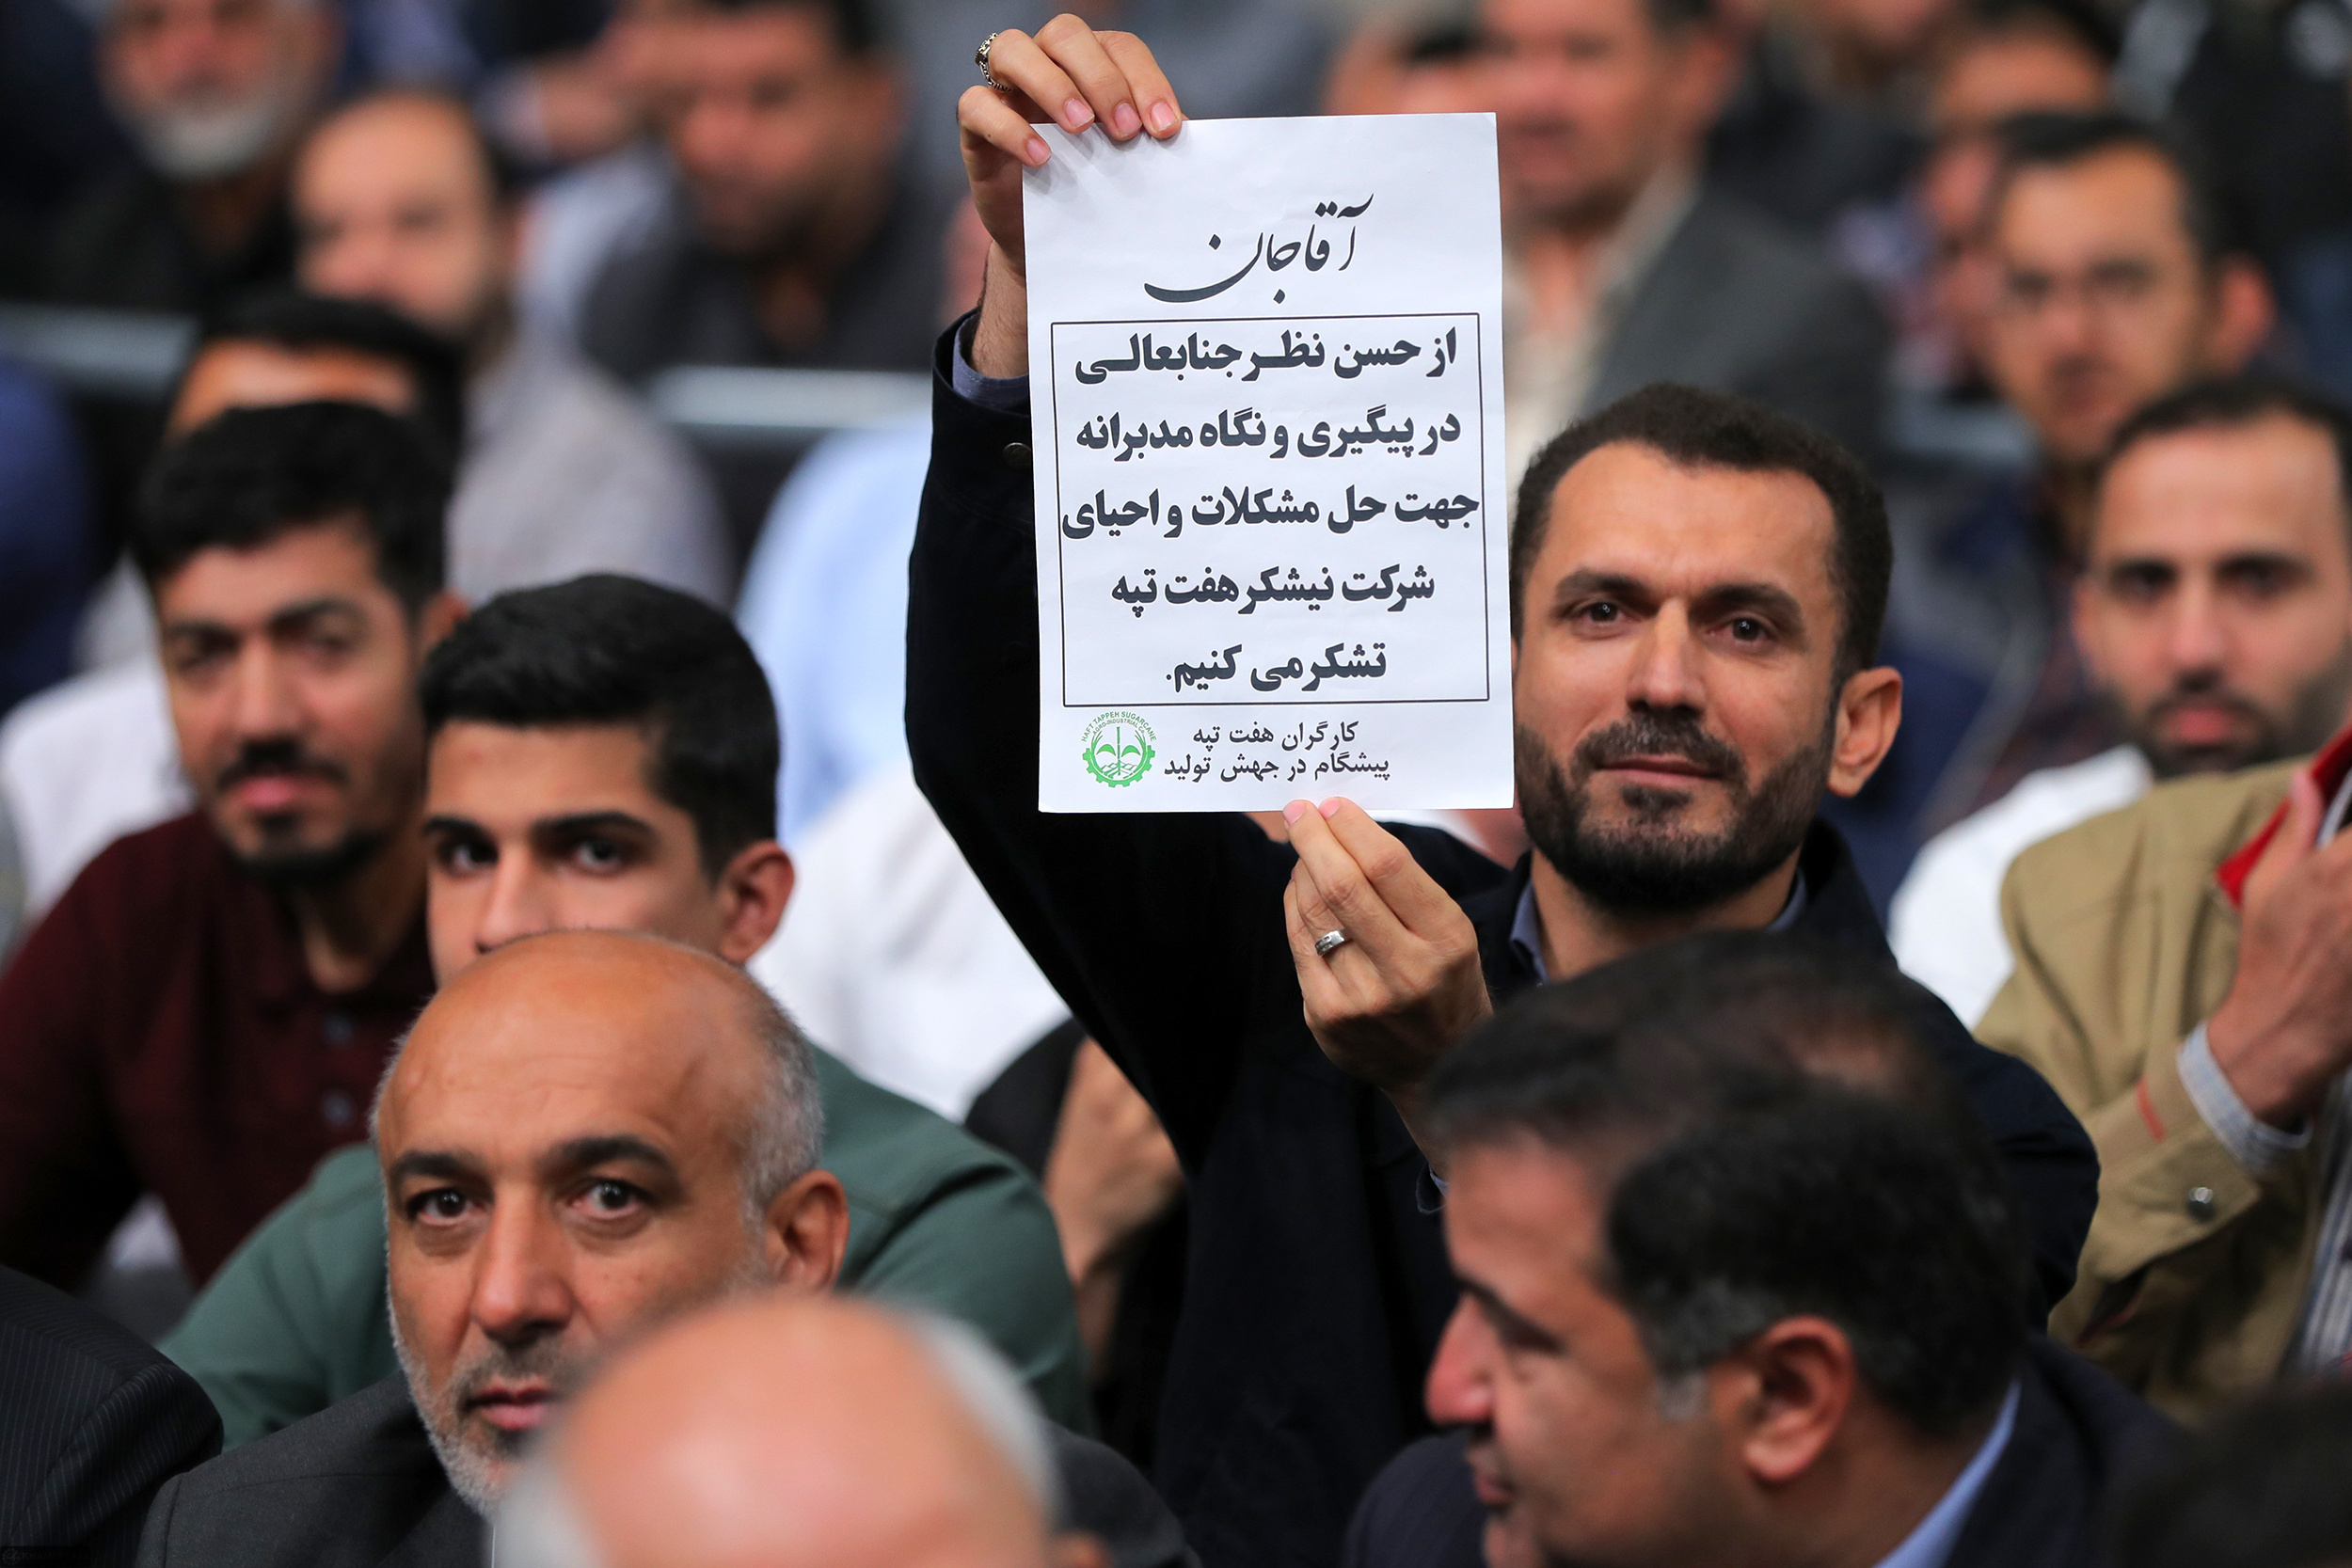 آقاجان
از حسن نظر جنابعالی
در پیگیری و نگاه مدبرانه
جهت حل مشکلات و احیای
شرکت نیشکر هفت تپه
تشکر می کنیم.
کارگران هفت تپه
پیشگام در جهش تولید
HAFT TAPPEH SUGARCANE
AGRO-INDUSTRIAL CO.